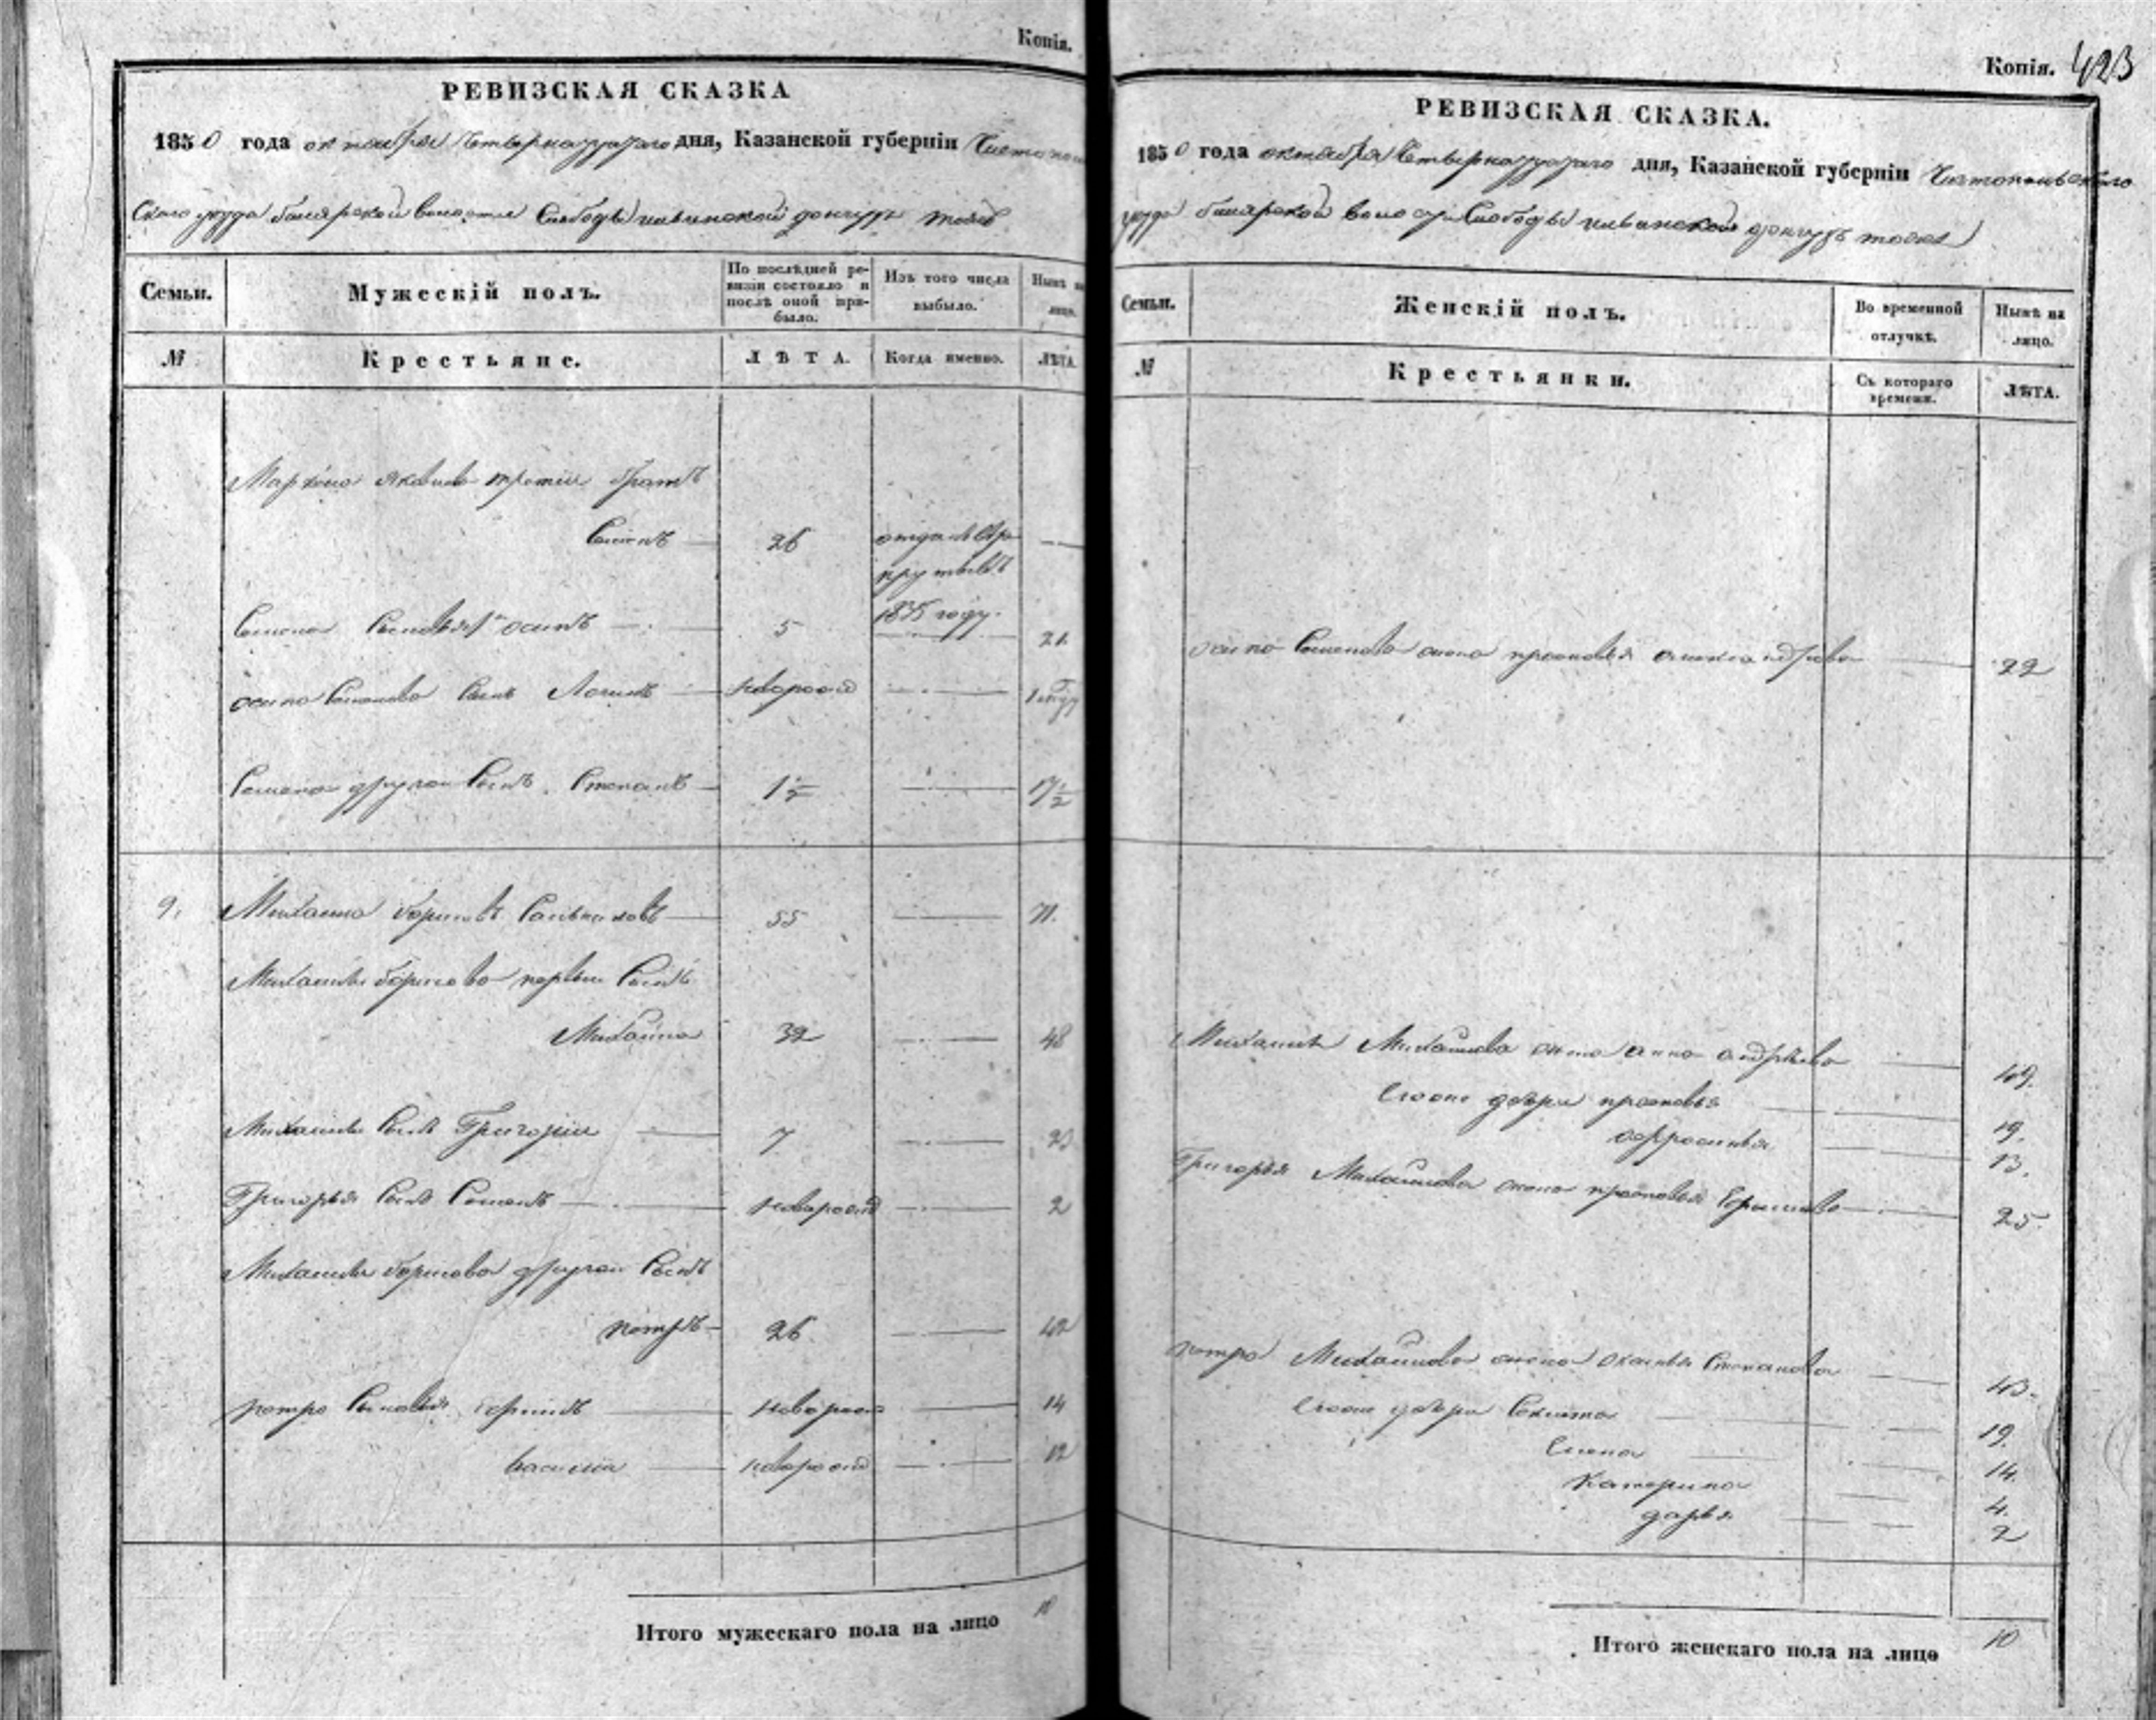 Копія.
РЕВИЗСКАЯ СКАЗКА
1850 года октября Четвернадцатаго дня, Казанской губерніи Чистополь
скаго уезда билярской волости Слободы
Семьи.
Мужескій полъ.
По послѣдней ре-
визіи состояло и
послѣ оной при-
было.
Изъ того числа
выбыло.
Нынѣ на
лицо.
№
Крестьяне.
ЛѢТА.
Когда именно.
ЛѢТА.
Яковлева третий братъ
Семенъ 26 отдан в ре
круты въ
1835 году.
Семена сыновья 1й осипъ 5 21
осипа Семенова сынъ Логинъ новорож 1
Семена другой сынъ Степанъ 1½ 17½
9. Михаила борисовъ 55 71.
Михаила борисова первый сынъ
Михаила 32 48
Михаила сынъ Григорий 7 23
Григорья сынъ Семенъ новорожд 2
Михаила борисова другой сынъ
петръ 26 42
петра сыновья новорож 14
василий новорожд 12
Итого мужескаго пола на лицо 10
Копія. 423
РЕВИЗСКАЯ СКАЗКА.
1850 года октября Четвернадцатаго дня, Казанской губерніи Чистопольскаго
уезда билярской волости Слободы
Семьи.
Женскій полъ.
Во временной
отлучкѣ.
Нынѣ на
лицо.
№
Крестьянки.
Съ котораго
времени.
ЛѢТА.
осипа Семенова жена прасковья александрова 22
Михаила Михайлова жена анна андрѣева 49.
Евоже дочери прасковья 19.
афросинья 13.
Григорья Михайлова жена прасковья Ефимова 25.
петра Михайлова жена Степанова 43.
Евоже дочери 19.
Елена 14.
Катерина 4.
дарья 2
Итого женскаго пола на лицо 10